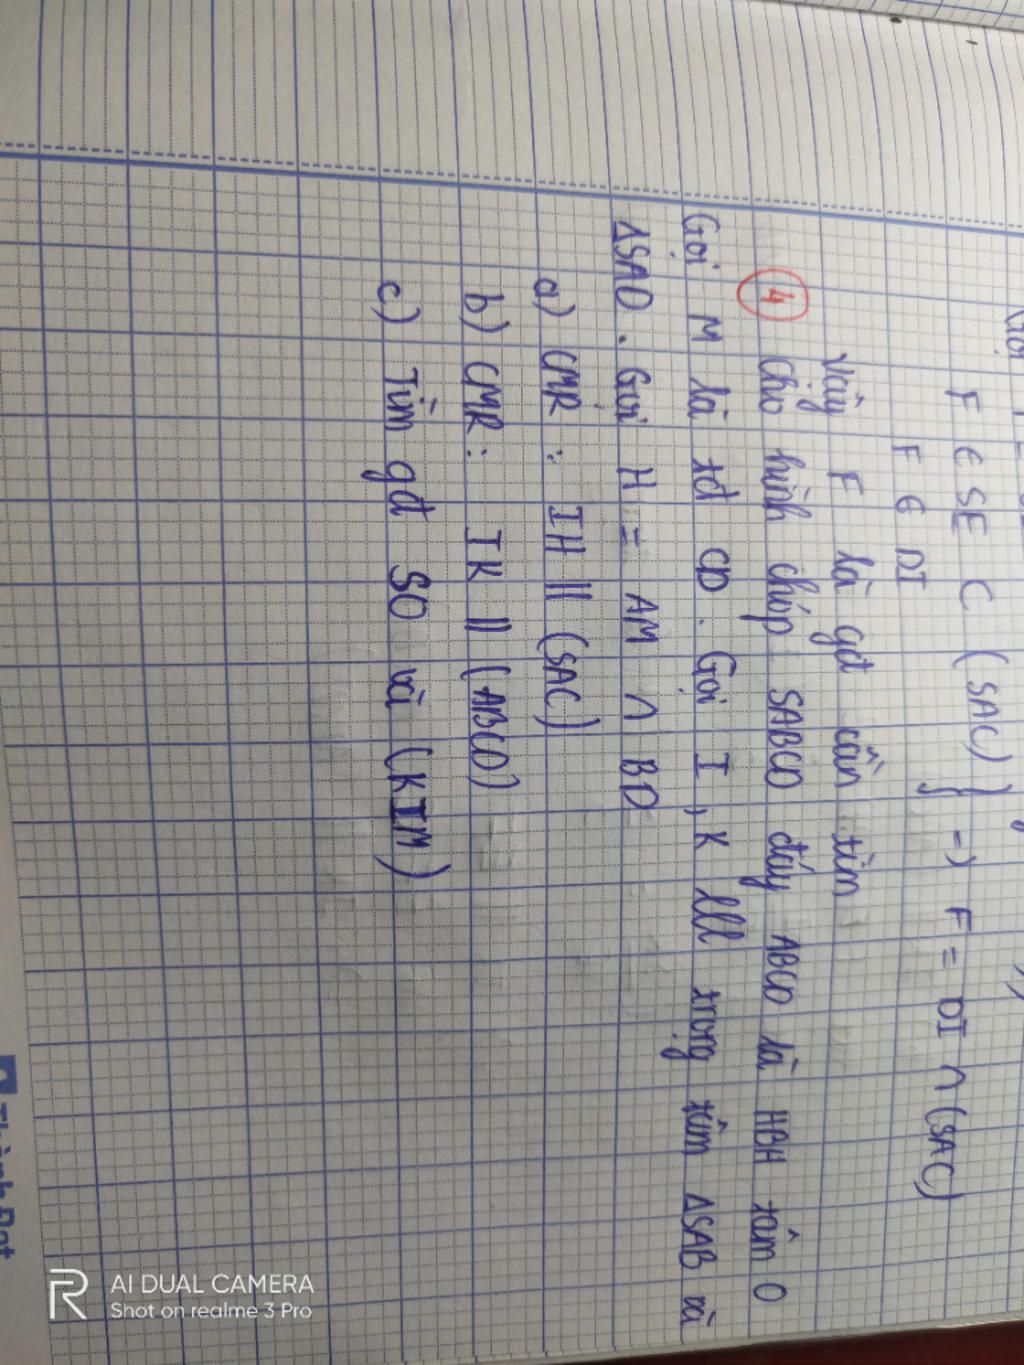 F ∈ SE ⊂ (SAC) } → F = DI ∩ (SAC)
F ∈ DI
Vậy F là gđ cần tìm
④ Cho hình chóp SABCD đáy ABCD là HBH tâm O
Gọi M là tđ CD. Gọi I, K lll trọng tâm ΔSAB và
ΔSAD. Gọi H = AM ∩ BD
a) CMR: IH || (SAC)
b) CMR: IK || (ABCD)
c) Tìm gđ SO và (KIM)
AI DUAL CAMERA
Shot on realme 3 Pro